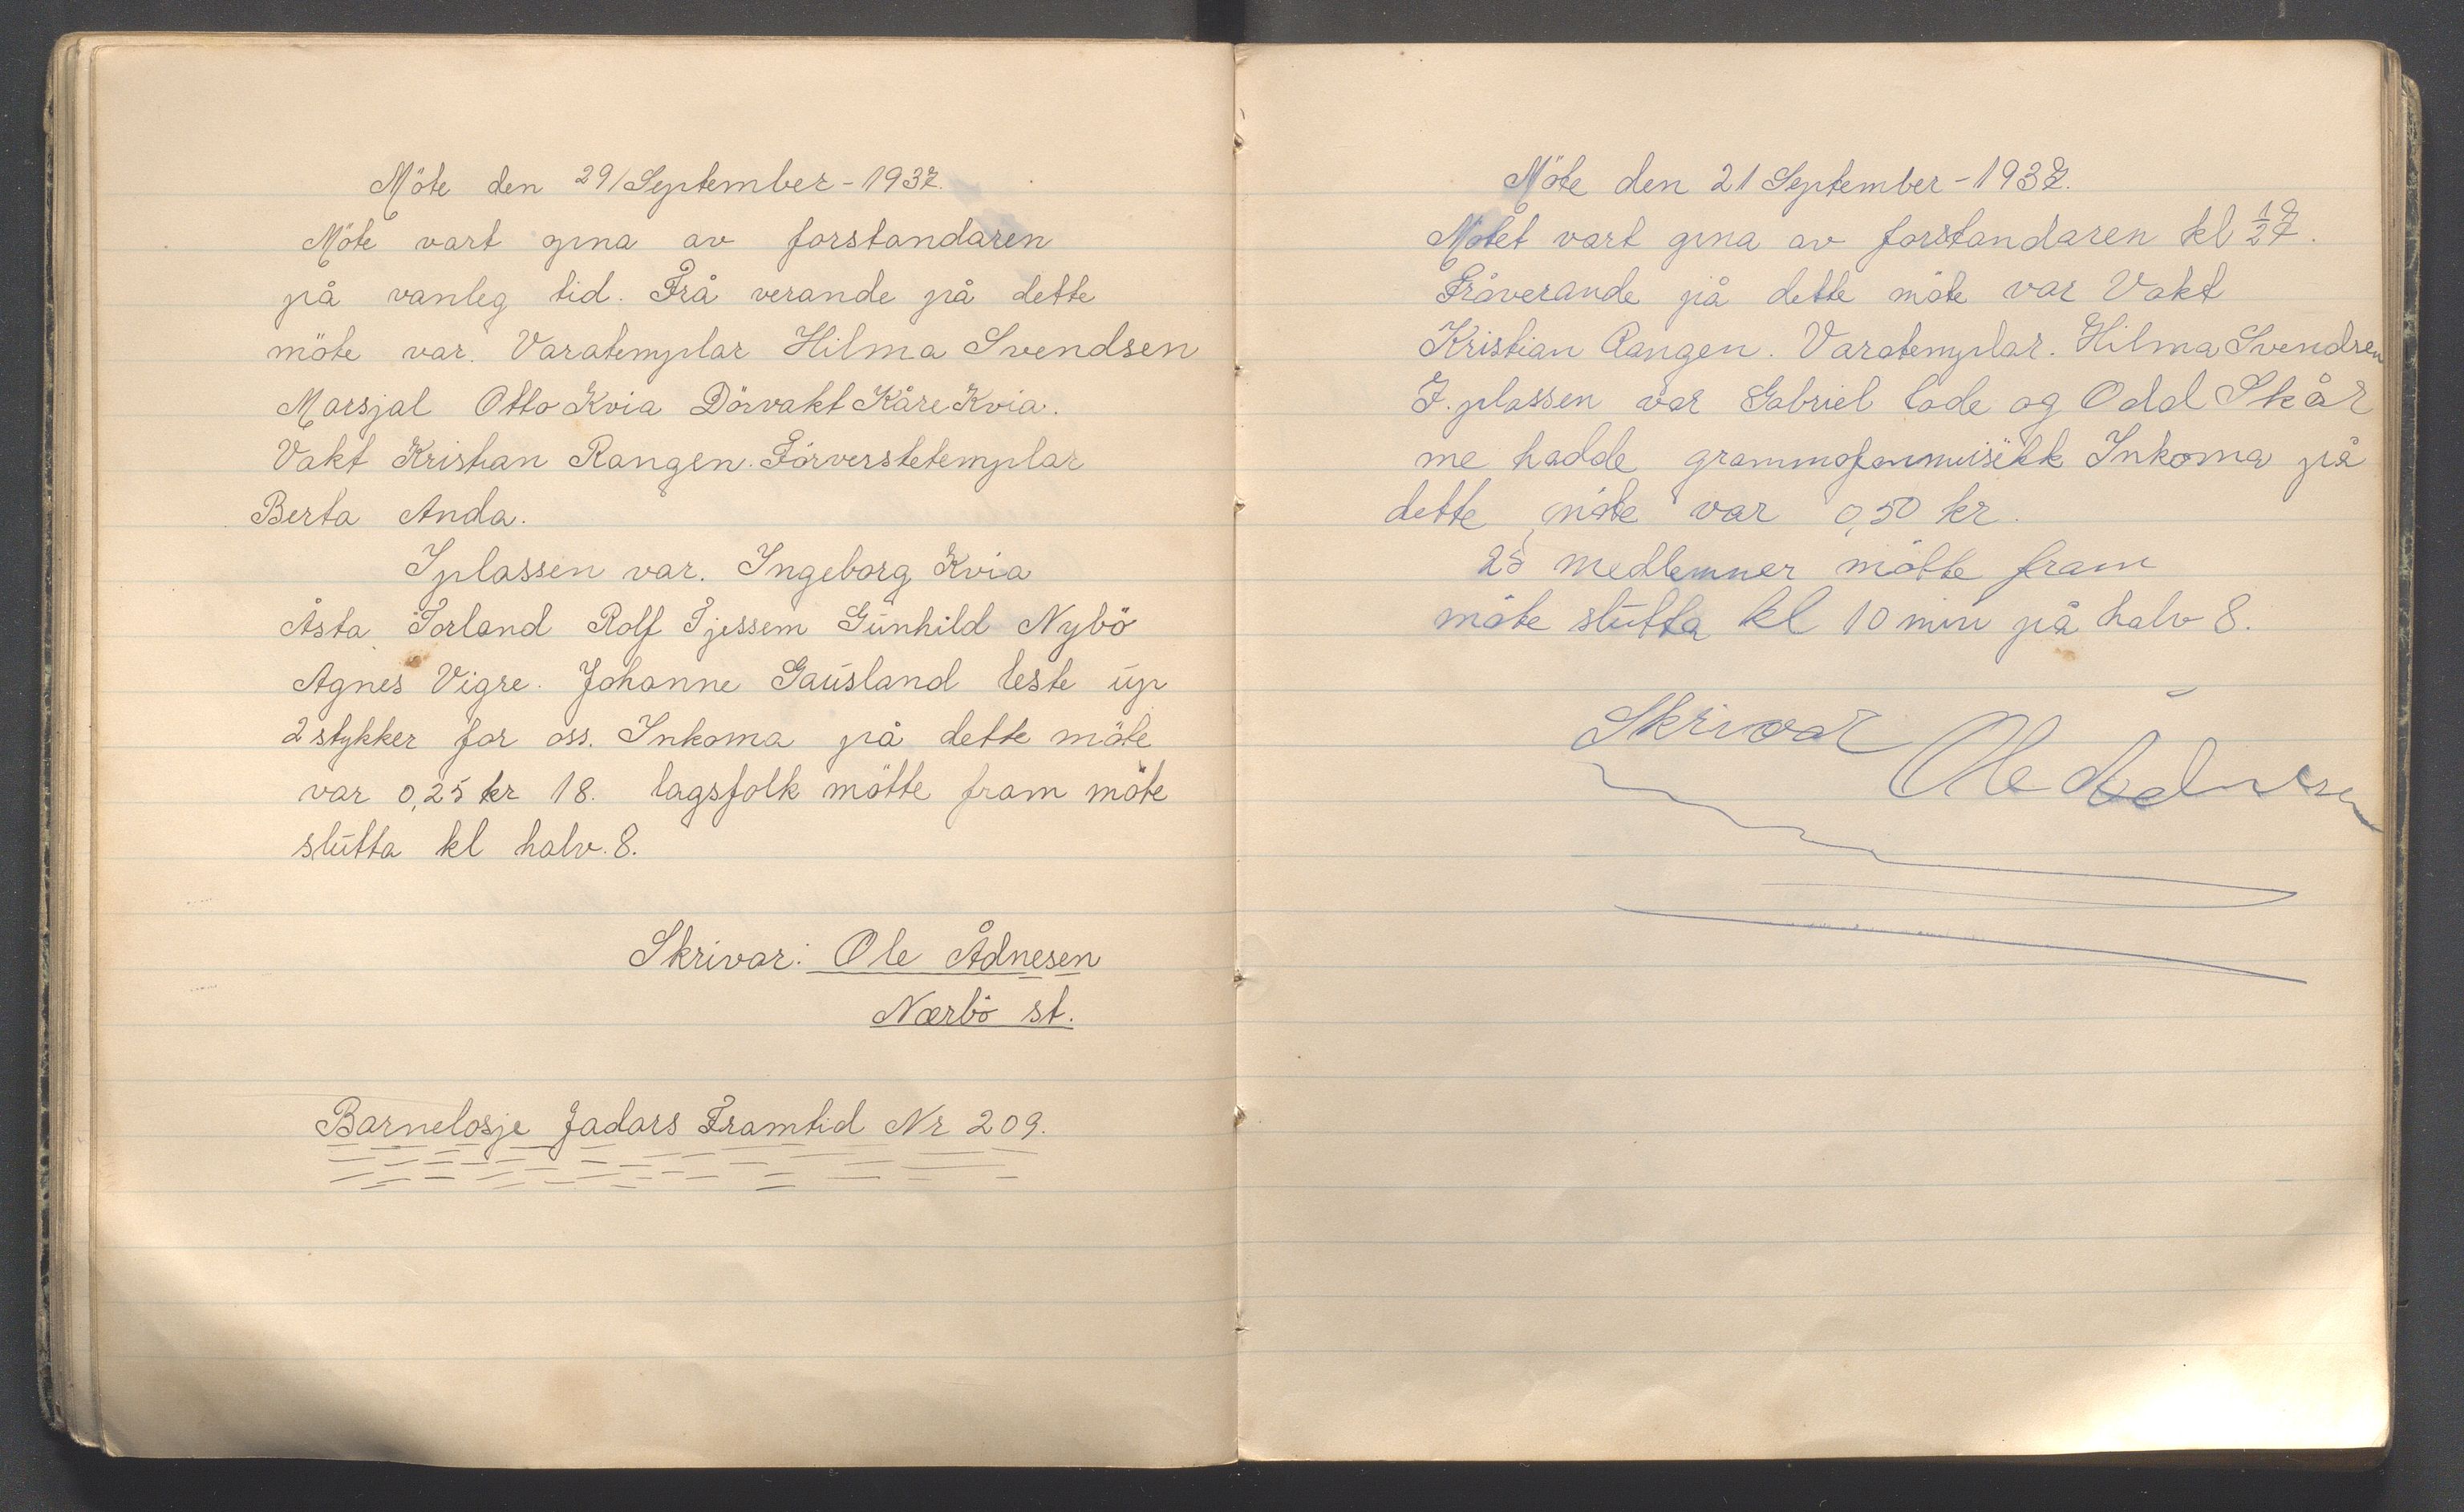 Möte den 29/September-1937.
Möte vart gina av forstandaren
på vanleg tid. Frå verande på dette
möte var. Varatemplar Hilma Svendsen
Marsjal Otto Kvia Dörvakt Kåre Kvia.
Vakt Kristian Rangen. Förverstetemplar
Berta Anda.
Iplassen var. Ingeborg Kvia
Åsta Torland Rolf Tjessem Gunhild Nybö
Agnes Vigre. Johanne Gausland leste up
2 stykker for oss. Inkoma på dette möte
var 0,25 kr 18. lagsfolk mötte fram möte
slutta kl halv.8.
Skrivar: Ole Ådnesen
Nærbö st.
Barnelosje Jadars Framtid Nr 209.
Möte den 21 September-1937.
Mötet vart gina av forstandaren kl 1/2 7.
Fråverande på dette möte var Vakt
Kristian Rangen. Varatemplar. Hilma Svendsen
I. plassen var Gabriel Lode og Odd Skår
me hadde grammofonmusikk Inkoma på
dette möte var 0,50 kr.
25 medlemmer mötte fram
möte slutta kl 10 min på halv 8.
Skrivar Ole Ådnesen